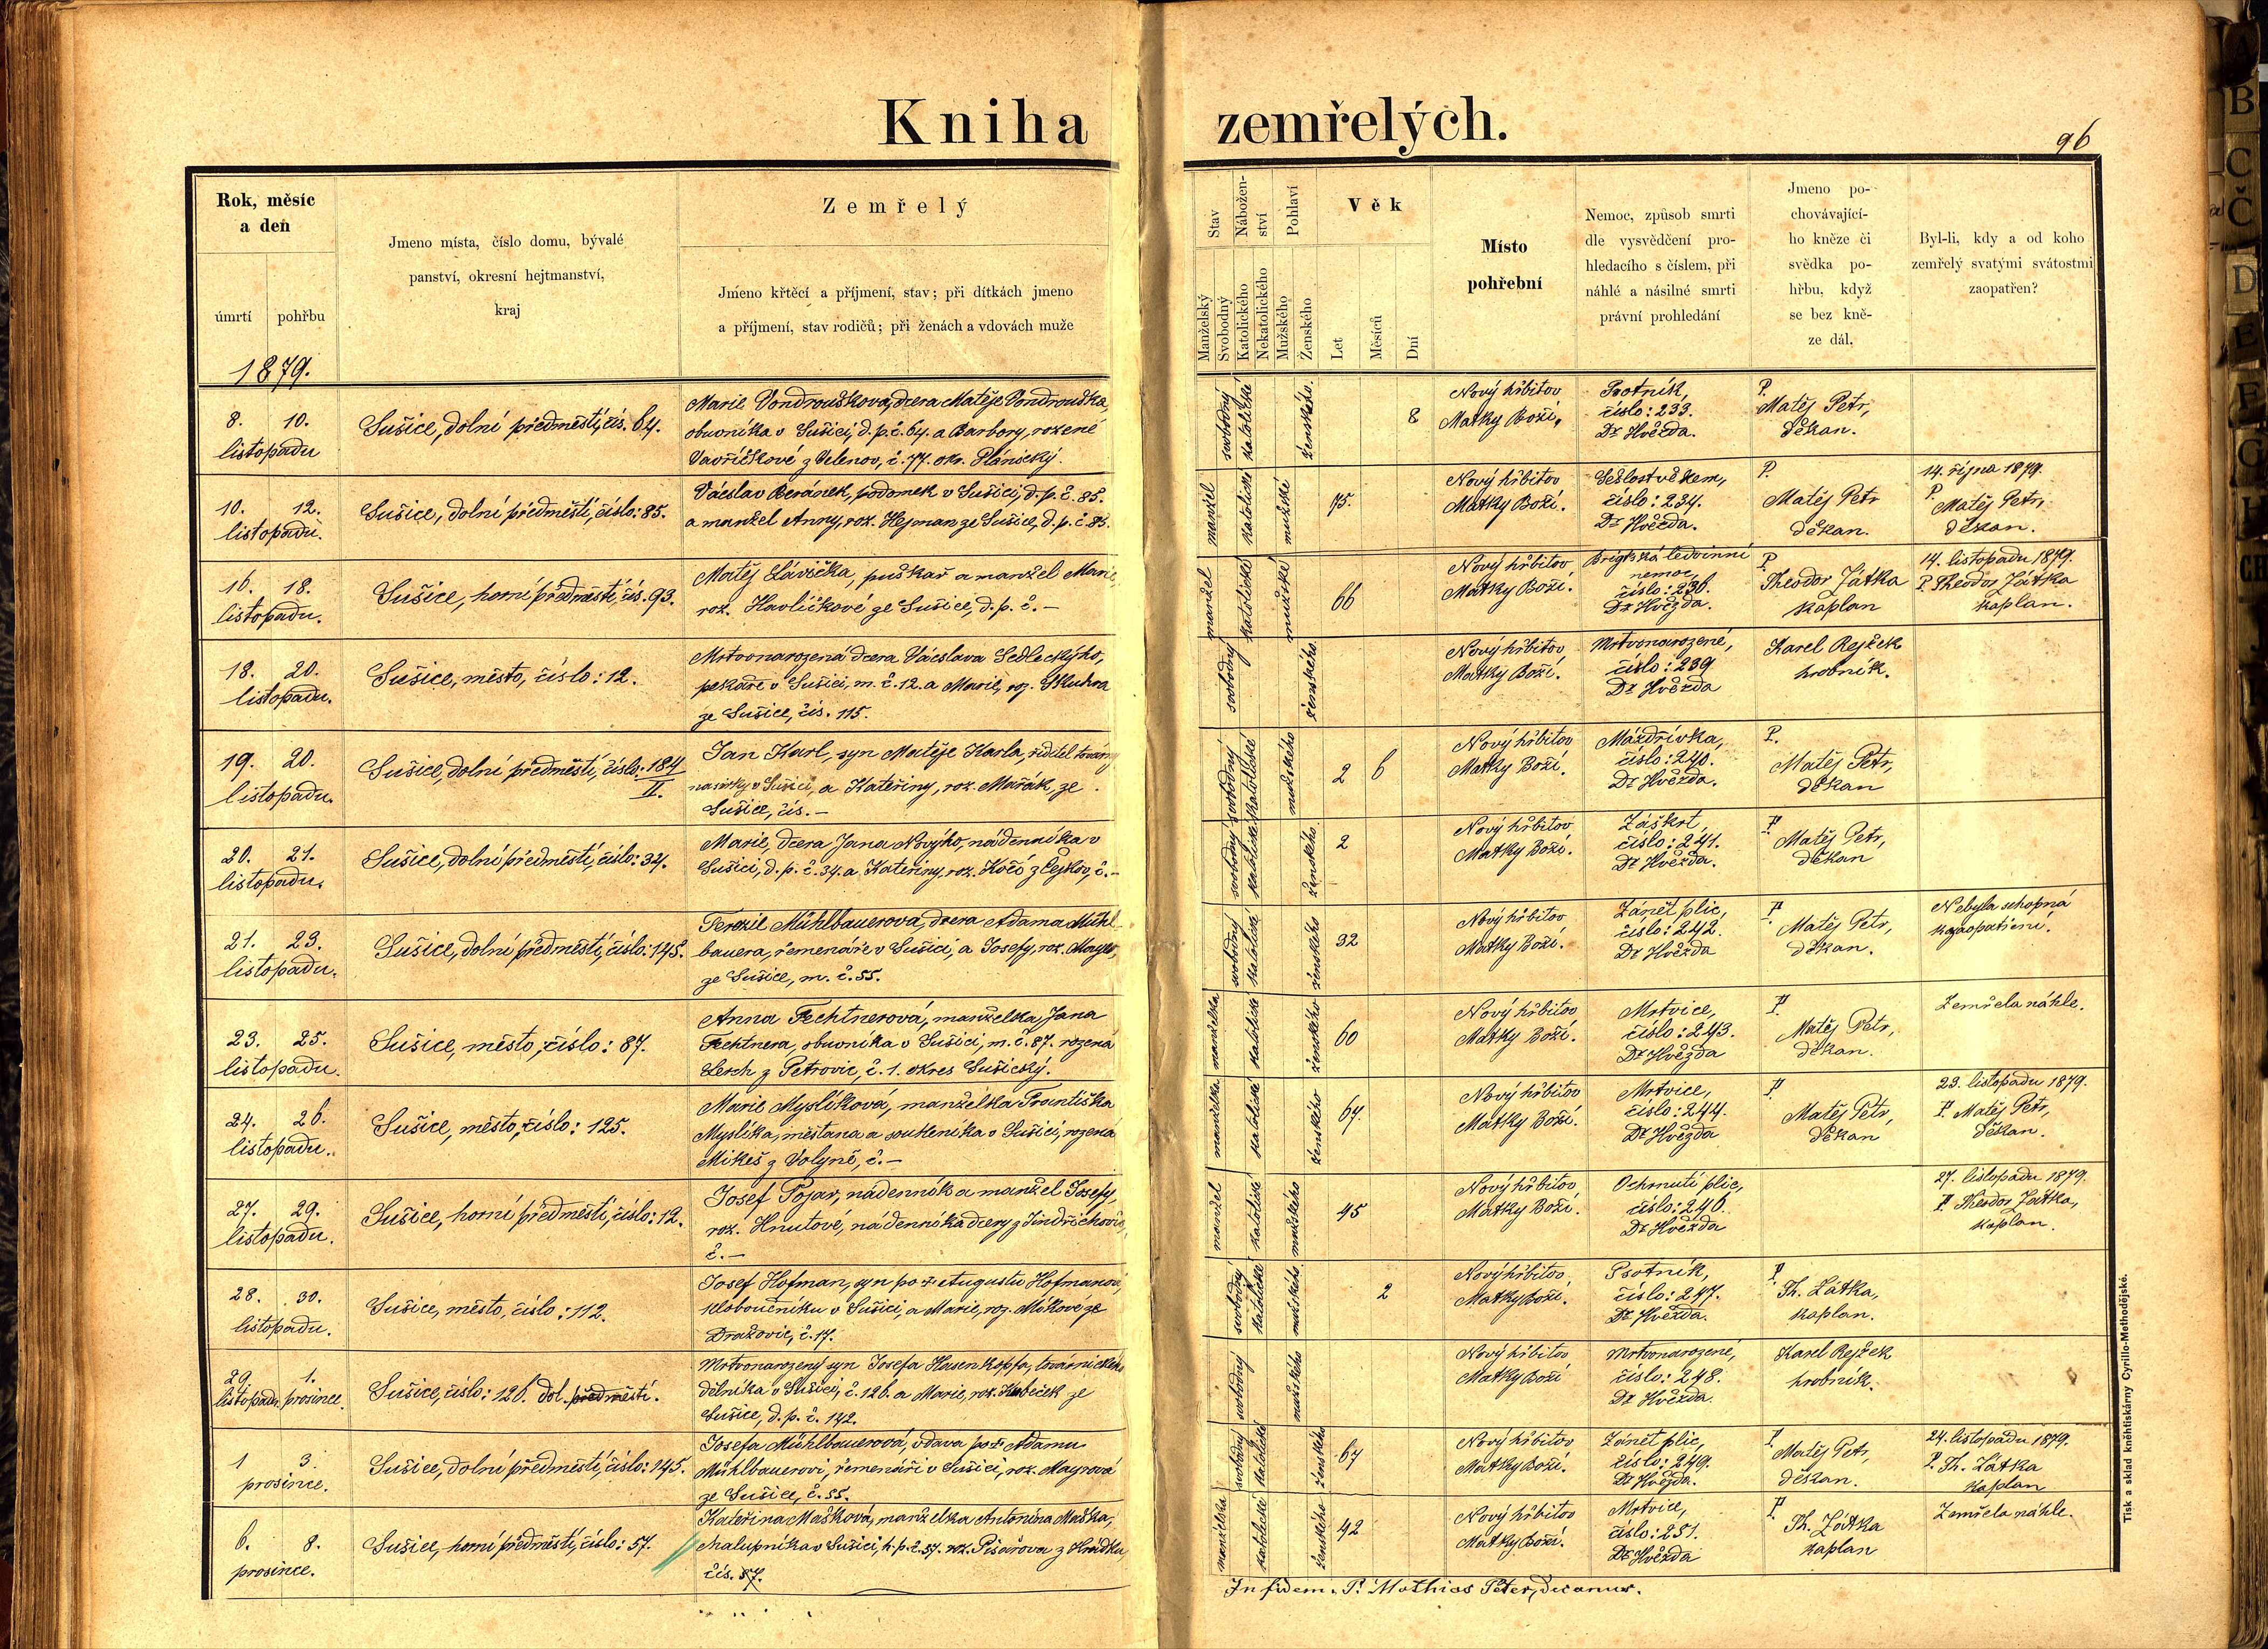 Kniha zemřelých.
96
Rok, měsíc
a den
úmrtí
pohřbu
1879.
Jmeno místa, číslo domu, bývalé
panství, okresní hejtmanství,
kraj
Zemřelý
Jméno křtěcí a příjmení, stav; při dítkách jmeno
a příjmení, stav rodičů; při ženách a vdovách muže
Stav
Manželský
Svobodný
Nábožen-
ství
Katolického
Nekatolického
Pohlaví
Mužského
Ženského
Věk
Let
Měsíců
Dní
Místo
pohřební
Nemoc, způsob smrti
dle vysvědčení pro-
hledacího s číslem, při
náhlé a násilné smrti
právní prohledání
Jmeno po-
chovávající-
ho kněze či
svědka po-
hřbu, když
se bez kně-
ze dál.
Byl-li, kdy a od koho
zemřelý svatými svátostmi
zaopatřen?
8. 10.
listopadu
Sušice, dolní předměstí, čís. 64.
Marie Vondroušková, dcera Matěje Vondrouška,
obuvníka v Sušici, d. p. č. 64. a Barbory, rozené
Vavřičkové z Velenov, č. 77. okr. Plánický.
svobodný
katolické
ženského.
8
Nový hřbitov
Matky Boží.
Psotník,
číslo: 233.
Dr Hvězda.
P.
Matěj Petr,
děkan.
10. 12.
listopadu.
Sušice, dolní předměstí, číslo: 85.
Václav Beránek, podomek v Sušici, d. p. č. 85.
a manžel Anny, roz. Hejman ze Sušice, d. p. č. 85.
manžel
katolické
mužské
75.
Nový hřbitov
Matky Boží.
Sešlost věkem,
číslo: 234.
Dr Hvězda.
P.
Matěj Petr
děkan.
14. října 1879.
P.
Matěj Petr,
děkan.
16. 18.
listopadu.
Sušice, horní předměstí, čís. 93.
Matěj Lávička, puškař a manžel Marie
roz. Havlíčkové ze Sušice, d. p. č. –
manžel
katolické
mužské
66
Nový hřbitov
Matky Boží.
Brigtská ledvinní
nemoc,
číslo: 236.
Dr Hvězda.
P.
Theodor Zátka
kaplan
14. listopadu 1879.
P. Theodor Zátka
kaplan.
18. 20.
listopadu.
Sušice, město, číslo: 12.
Mrtvonarozená dcera Václava Sedleckýho,
pekaře v Sušici, m. č. 12. a Marie, roz. Skuhra
ze Sušice, čís. 115.
svobodný
ženského
Nový hřbitov
Matky Boží.
Mrtvonarozené,
číslo: 239
Dr Hvězda
Karel Rejžek
hrobník.
19. 20.
listopadu.
Sušice, dolní předměstí, číslo: 184
II.
Jan Karl, syn Matěje Karla, ředitel továrny
na sirky v Sušici, a Kateřiny, roz. Mařák, ze
Sušice, čís. –
svobodný
katolické
mužského
2 6
Nový hřbitov
Matky Boží.
Mázdřivka,
číslo: 240.
Dr Hvězda.
P.
Matěj Petr,
děkan
20. 21.
listopadu.
Sušice, dolní předměstí, číslo: 34.
Marie, dcera Jana Novýho, nádenníka v
Sušici, d. p. č. 34. a Kateřiny, roz. Kočí z Čejkov, č. –
svobodný
katolické
ženského
2
Nový hřbitov
Matky Boží.
Záškrt
číslo: 241.
Dr Hvězda.
P.
Matěj Petr,
děkan
21. 23.
listopadu.
Sušice, dolní předměstí, číslo: 145.
Terezie Mühlbauerová, dcera Adama Mühl-
bauera, řemenáře v Sušici, a Josefy, roz. Mayr,
ze Sušice, m. č. 55.
svobodný
katolické
ženského
32
Nový hřbitov
Matky Boží.
Zánět plic,
číslo: 242.
Dr Hvězda
P.
Matěj Petr,
děkan.
Nebyla schopná
k zaopatření.
23. 25.
listopadu.
Sušice, město, číslo: 87.
Anna Fechtnerová, manželka Jana
Fechtnera, obuvníka v Sušici, m. č. 87. rozená
Lerch z Petrovic, č. 1. okres Sušický.
manželka
katolické
ženského
60
Nový hřbitov
Matky Boží.
Mrtvice,
číslo: 243.
Dr Hvězda
P.
Matěj Petr,
děkan.
Zemřela náhle.
24. 26.
listopadu.
Sušice, město, číslo: 125.
Marie Myslíková, manželka Františka
Myslíka, měšťana a soukeníka v Sušici, rozená
Mikeš z Volyně, č. –
manželka
katolické
ženského
67.
Nový hřbitov
Matky Boží.
Mrtvice,
číslo: 244.
Dr Hvězda
P.
Matěj Petr,
děkan
23. listopadu 1879.
P. Matěj Petr,
děkan.
27. 29.
listopadu.
Sušice, horní předměstí, číslo: 12.
Josef Pojar, nádenník a manžel Josefy,
roz. Hnutové, nádenníka dcery z Jindřichovic,
č. –
manžel
katolické
mužského
45
Nový hřbitov
Matky Boží.
Ochrnutí plic,
číslo: 246.
Dr Hvězda
27. listopadu 1879.
P. Theodor Zátka,
kaplan.
28. 30.
listopadu.
Sušice, město, číslo: 112.
Josef Hofman, syn po † Augustu Hofmanovi,
kloboučníku v Sušici, a Marie, roz. Míkové ze
Dražovic, č. 17.
svobodný
katolické
mužského
2
Nový hřbitov
Matky Boží.
Psotník,
číslo: 247.
Dr Hvězda.
P.
Th. Zátka,
kaplan.
29. 1.
listopadu prosince.
Sušice, číslo: 126. dol. předměstí.
Mrtvonarozený syn Josefa Hasenkopfa, továrnického
dělníka v Sušici, č. 126. a Marie, roz. Kubeček ze
Sušice, d. p. č. 142.
svobodný
mužského
Nový hřbitov
Matky Boží
Mrtvonarozené,
číslo: 248.
Dr Hvězda.
Karel Rejžek
hrobník.
1 3.
prosince.
Sušice, dolní předměstí, číslo: 145.
Josefa Mühlbauerová, vdova po † Adamu
Mühlbauerovi, řemenáři v Sušici, roz. Mayrová
ze Sušice, č. 55.
svobodný
katolické
ženského
67
Nový hřbitov
Matky Boží.
Zánět plic,
číslo: 249.
Dr Hvězda.
P.
Matěj Petr,
děkan.
24. listopadu 1879.
P. Th. Zátka
kaplan
6. 8.
prosince.
Sušice, horní předměstí, číslo: 57.
Kateřina Mašková, manželka Antonína Maška,
chalupníka v Sušici, h. p. č. 57. roz. Pisařova z Hrádku
čís. 57.
manželka
katolické
ženského
42
Nový hřbitov
Matky Boží.
Mrtvice,
číslo: 251.
Dr Hvězda
P.
Th. Zátka
kaplan
Zemřela náhle.
In fidem. P. Mathias Peter, decanus.
Tisk a sklad kněhtiskárny Cyrillo-Methodějské.